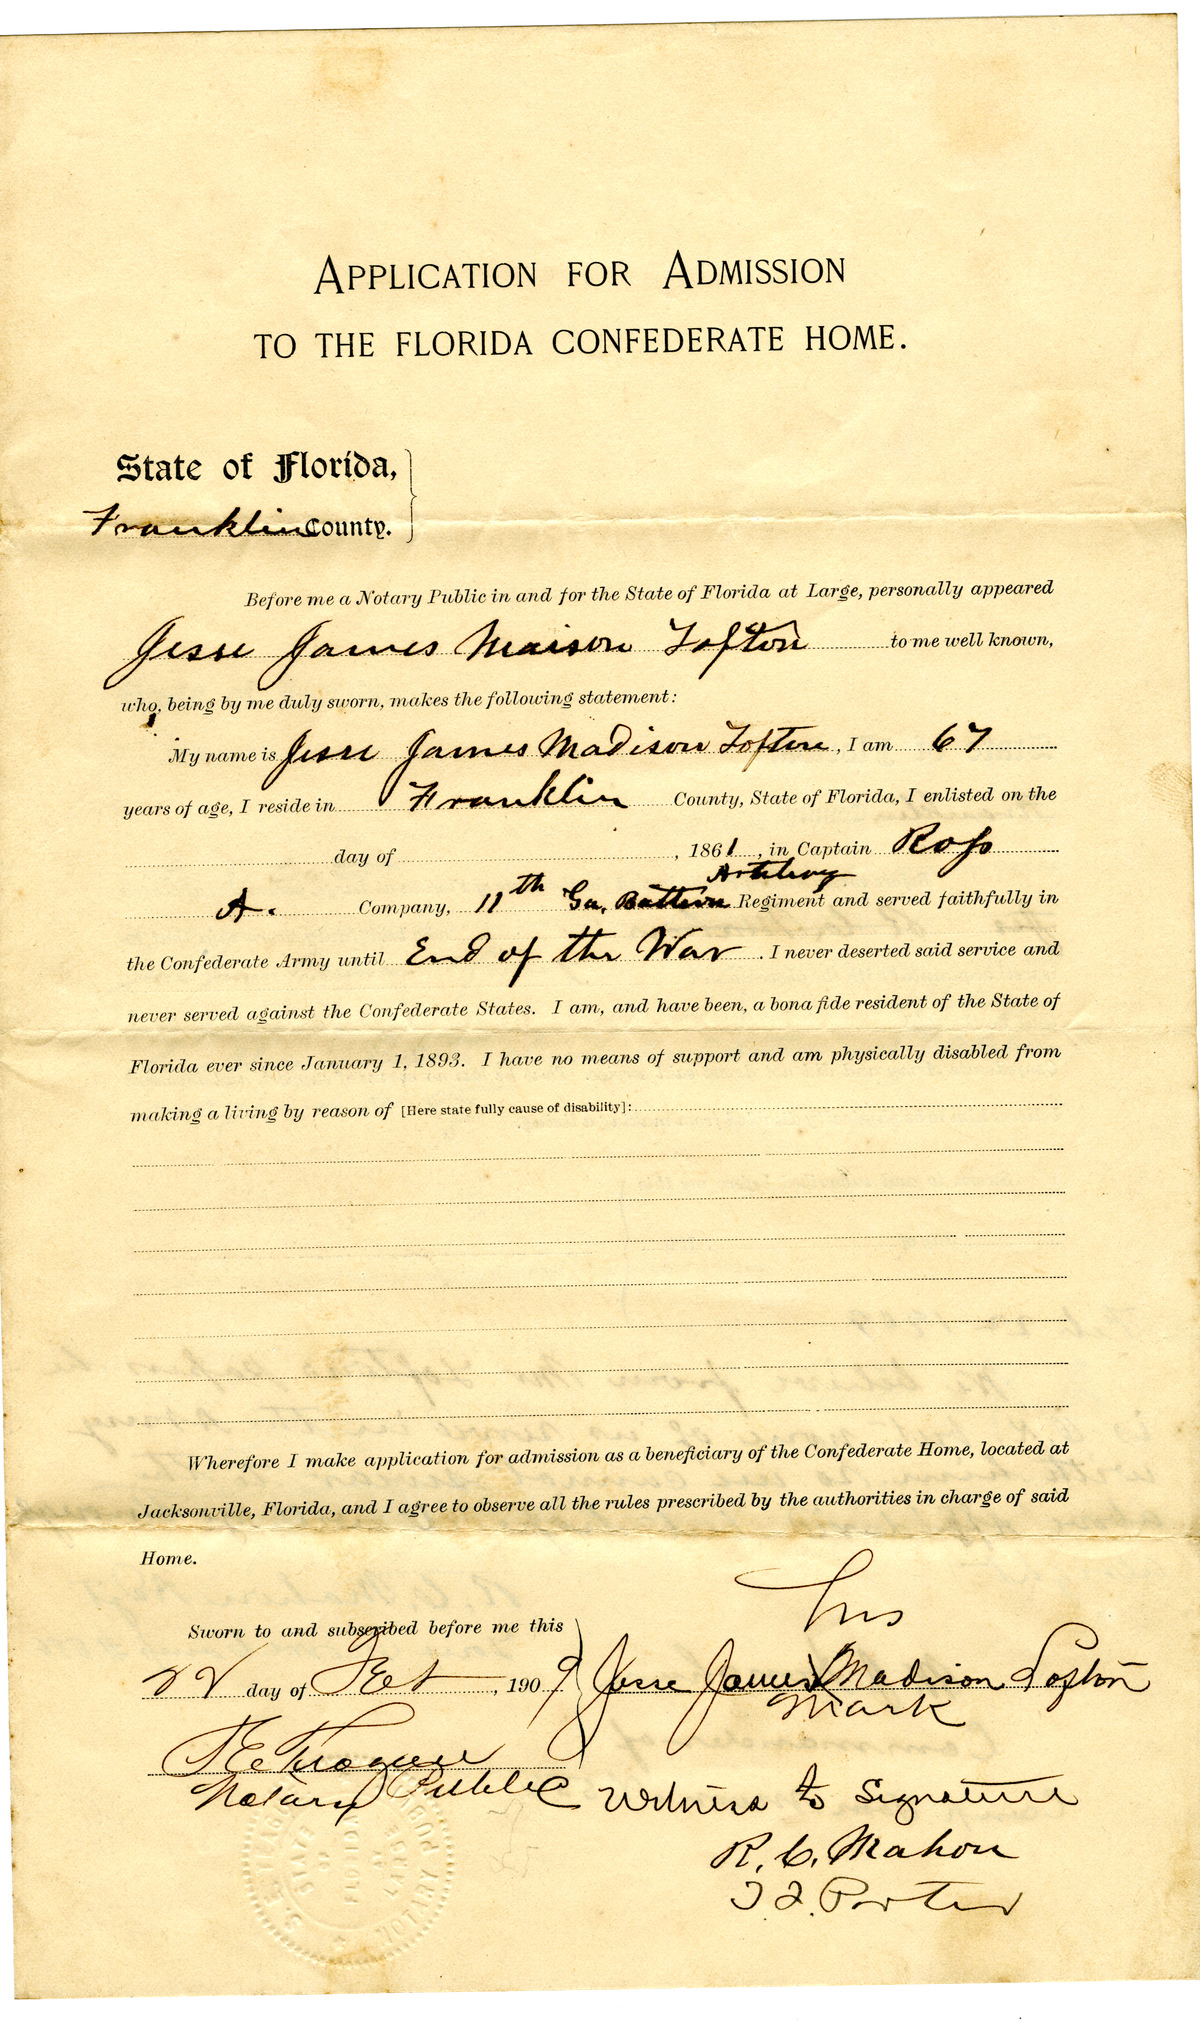 APPLICATION FOR ADMISSION
TO THE FLORIDA CONFEDERATE HOME.
State of Florida,
Franklin County.
Before me a Notary Public in and for the State of Florida at Large, personally appeared
Jesse James Maison Lofton to me well known,
who, being by me duly sworn, makes the following statement:
My name is Jesse James Madison Lofton, I am 67
years of age, I reside in Franklin County, State of Florida, I enlisted on the
day of , 1861, in Captain Ross
Artilery
A. Company, 11th Ga. Regiment and served faithfully in
the Confederate Army until End of the War. I never deserted said service and
never served against the Confederate States. I am, and have been, a bona fide resident of the State of
Florida ever since January 1, 1893. I have no means of support and am physically disabled from
making a living by reason of [Here state fully cause of disability]:
Wherefore I make application for admission as a beneficiary of the Confederate Home, located at
Jacksonville, Florida, and I agree to observe all the rules prescribed by the authorities in charge of said
Home.
his
Sworn to and subscribed before me this
22 day of Feb, 1909 Jesse James X Madison Lofton
mark
Notary Public Witness to Signature
R. C. Mahon
Porter
NOTARY PUBLIC
STATE OF FLORIDA AT LARGE